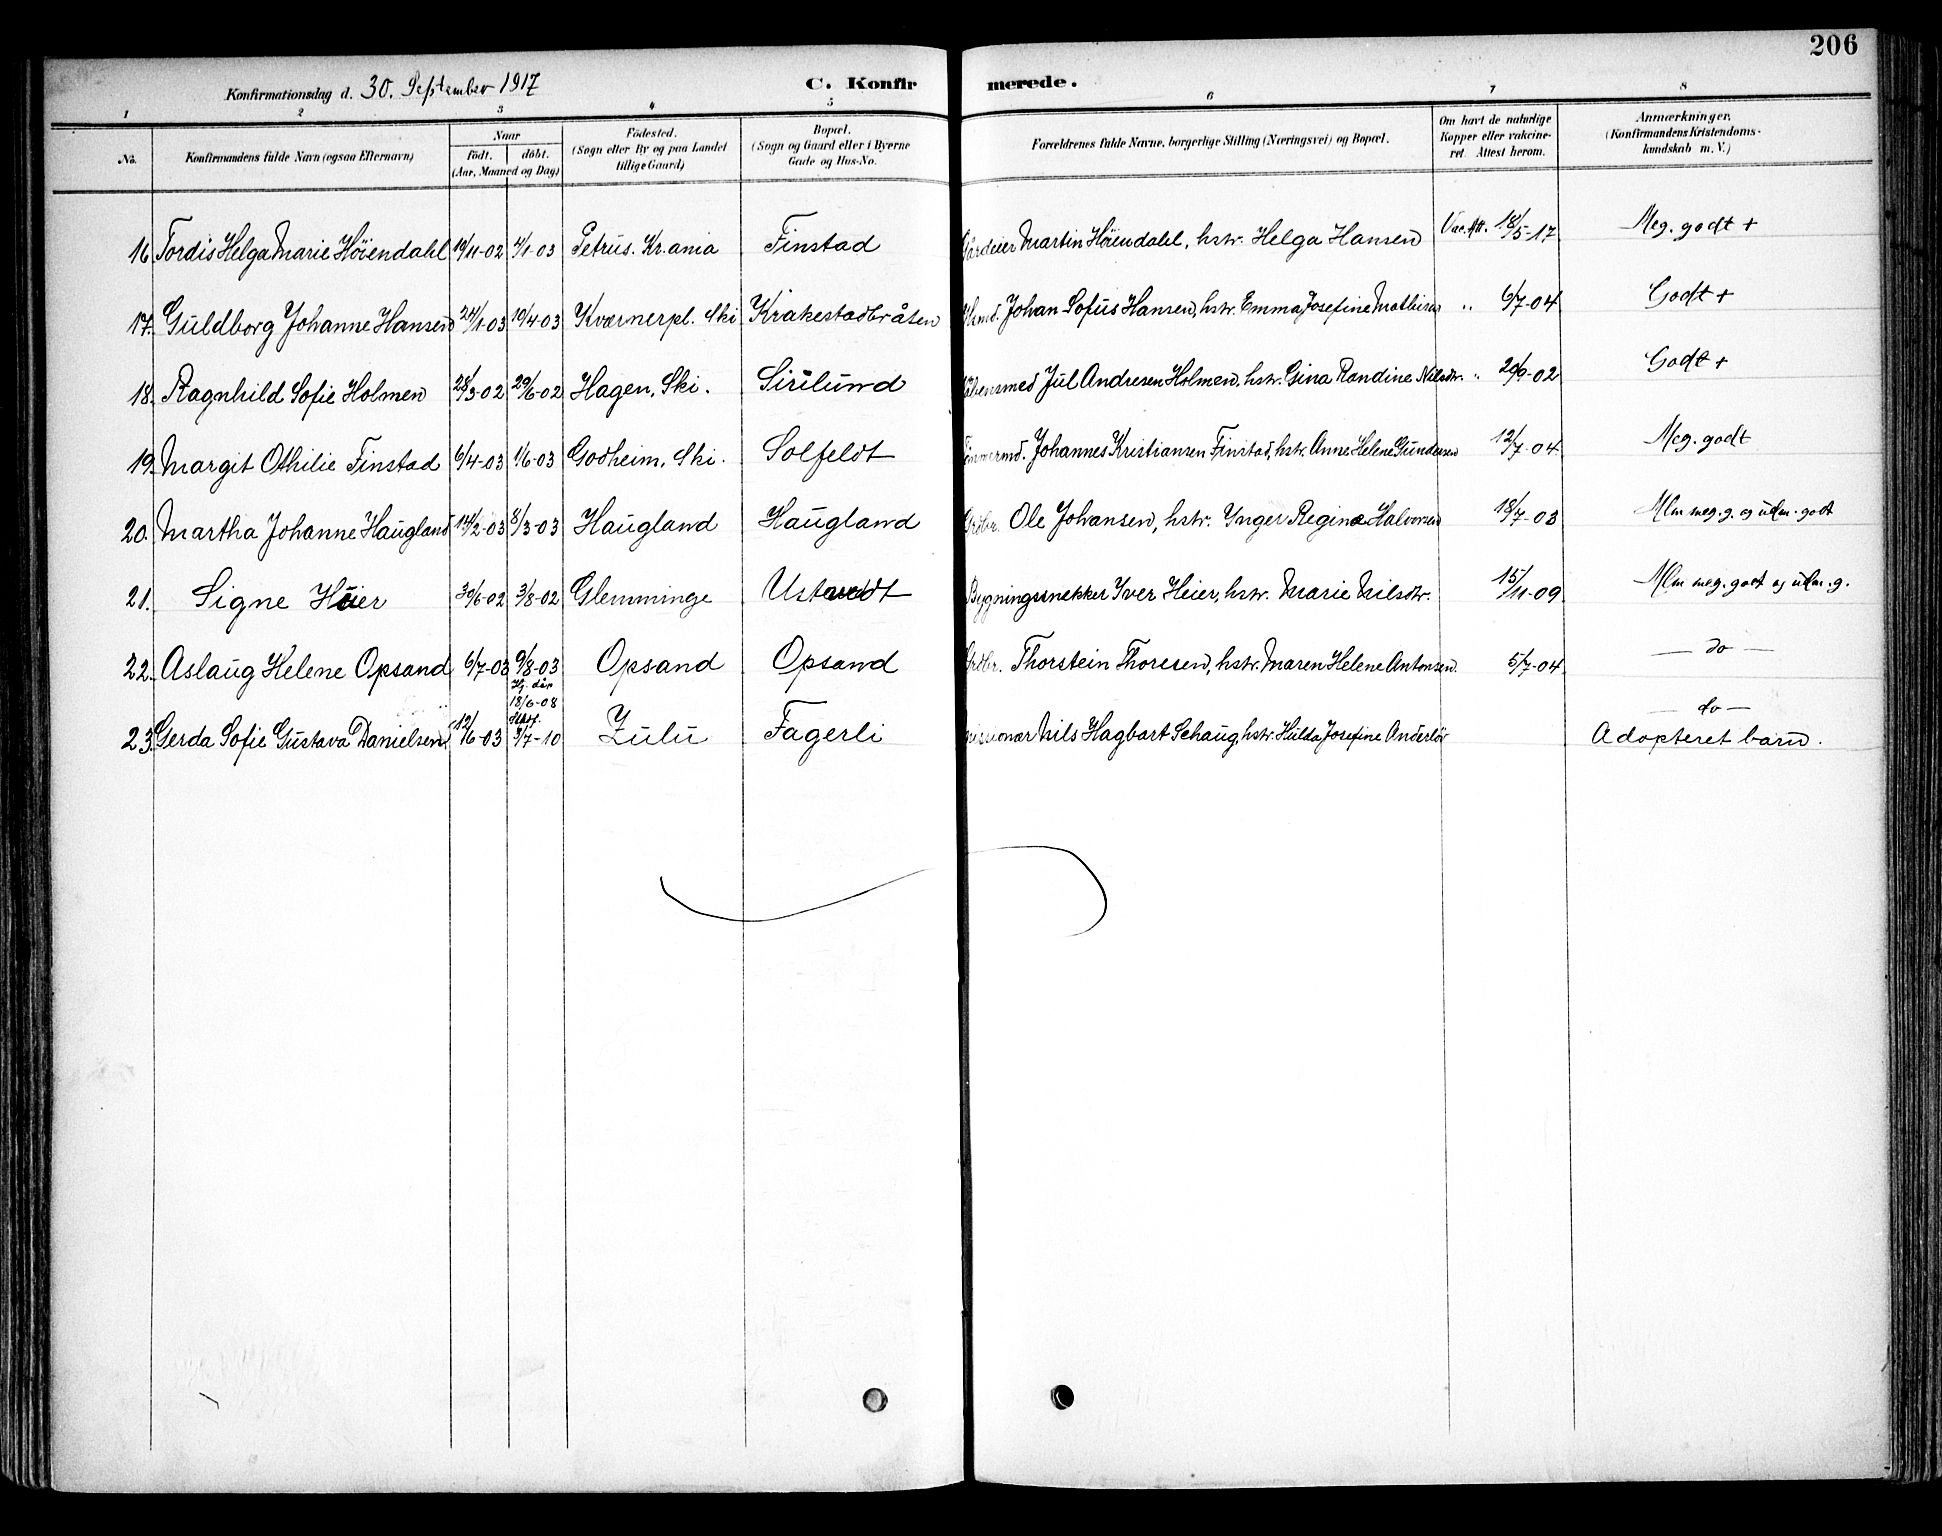 206
Konfirmationsdag d. 30. September 1917 C. Konfirmerede.
1 2 3 4 5 6 7 8
No. Konfirmandens fulde Navn (ogsaa Efternavn) Naar födt. döbt. (Aar, Maaned og Dag) Födested. (Sogn eller By og paa Landet tillige Gaard) Bopæl. (Sogn og Gaard eller i Byerne Gade og Hus-No. Forældrenes fulde Navne, borgerlige Stilling (Næringsvei) og Bopæl. Om havt de naturlige Kopper eller vakcineret. Attest herom. Anmærkninger. (Konfirmandens Kristendomskundskab m. V.)
16. Tordis Helga Marie Höiendahl 19/11-02 4/1-03 Petrus. Kr.ania Finstad Gårdeier Martin Höiendahl, hstr. Helga Hansen Vac. Att. 18/5-17 Meg. godt +
17. Guldborg Johanne Hansen 24/1-03 10/4-03 Kværnerpl. Ski Kråkestadbråten Johan Sofus Hansen, hstr. Emma Josefine Mathisen „ 6/7-04 Godt +
18. Ragnhild Sofie Holmen 28/3-02 29/6-02 Hagen, Ski. Sirilund Jul Andresen Holmen, hstr. Gina Randine Nilsdtr. „ 20/6-02 Godt +
19. Margit Othilie Finstad 6/4-03 1/6-03 Godheim, Ski. Solfeldt Tömmermd. Johannes Kristiansen Finstad, hstr. Anne Helene Gundersen 12/7-04 Meg. godt
20. Martha Johanne Haugland 14/2-03 8/3-03 Haugland Haugland Grdbr. Ole Johansen, hstr. Ynger Regine Halvorsen 18/7-03 Mlm meg. g. og udm. godt
21. Signe Heier 30/6-02 3/8-02 Glemminge Ustvedt Bygningssnekker Yver Heier, hstr. Marie Nilsdtr. 15/11-09 Mlm meg. godt og udm. g.
22. Aslaug Helene Opsand 6/7-03 9/8-03 Opsand Opsand Grdbr. Thorstein Thoresen, hstr. Maren Helene Antonsen. 5/7-04 — do —
Hj. döbt 18/6-08
— do —
23. Gerda Sofie Gustava Danielsen 12/6-03 3/7-10 Zulu Fagerli Missionær Nils Hagbart Schaug, hstr. Hulda Josefine Anderlör Adopteret barn.